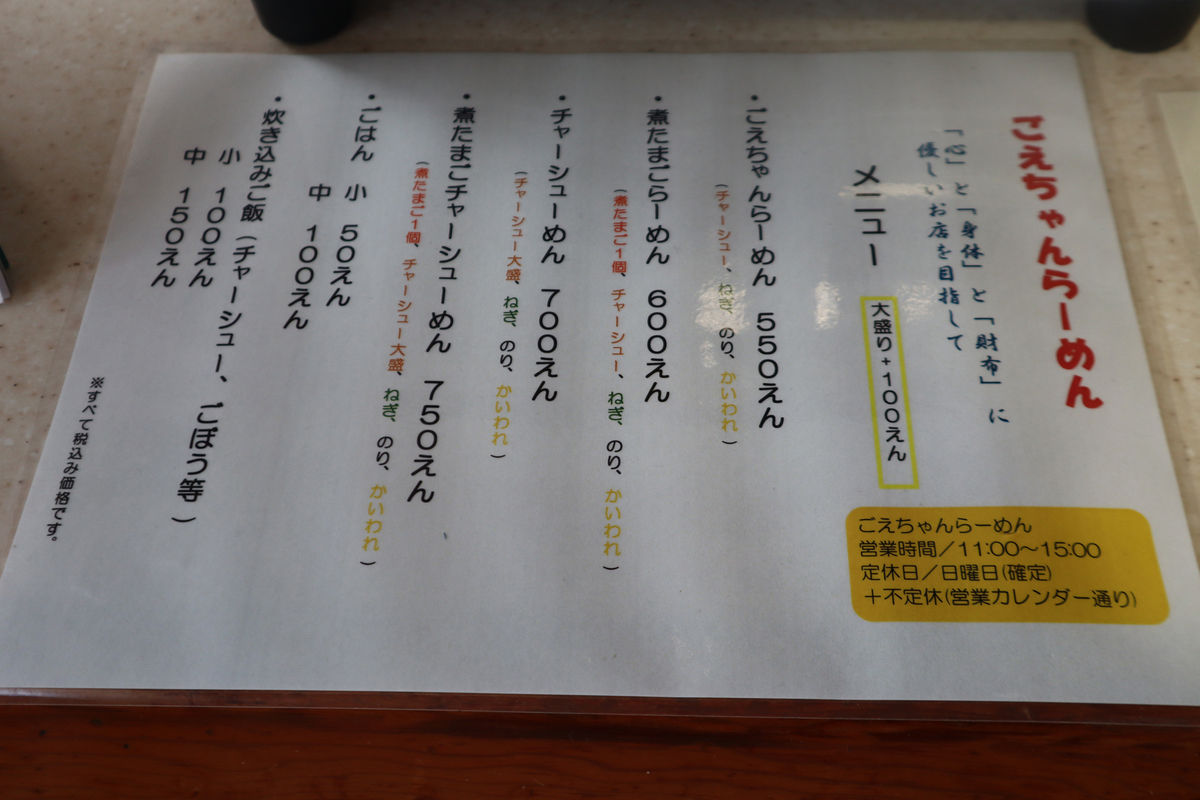 ごえちゃんらーめん
「心」と「身体」と「財布」に
優しいお店を目指して
メニュー
大盛り+100えん
・ごえちゃんらーめん 550えん
(チャーシュー、ねぎ、のり、かいわれ)
・煮たまごらーめん 600えん
(煮たまご1個、チャーシュー、ねぎ、のり、かいわれ)
・チャーシューめん 700えん
(チャーシュー大盛、ねぎ、のり、かいわれ)
・煮たまごチャーシューめん 750えん
(煮たまご1個、チャーシュー大盛、ねぎ、のり、かいわれ)
・ごはん 小 50えん
中 100えん
・炊き込みご飯(チャーシュー、ごぼう等)
小 100えん
中 150えん
※すべて税込み価格です。
ごえちゃんらーめん
営業時間/11:00~15:00
定休日/日曜日(確定)
+不定休(営業カレンダー通り)